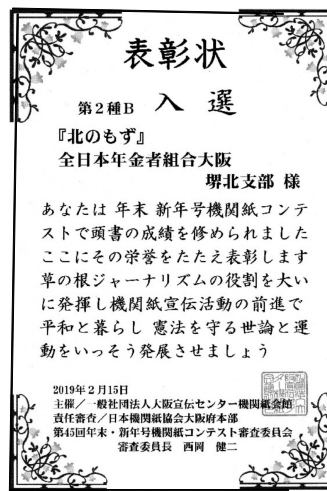 表彰状
第２種Ｂ 入選
『北のもず』
全日本年金者組合大阪
堺北支部 様
あなたは 年末 新年号機関紙コンテ
ストで頭書の成績を修められました
ここにその栄誉をたたえ表彰します
草の根ジャーナリズムの役割を大い
に発揮し機関紙宣伝活動の前進で
平和と暮らし 憲法を守る世論と運
動をいっそう発展させましょう
2019年２月15日
主催／一般社団法人大阪宣伝センター機関紙会館
責任審査／日本機関紙協会大阪府本部
第45回年末・新年号機関紙コンテスト審査委員会
審査委員長 西岡 健二